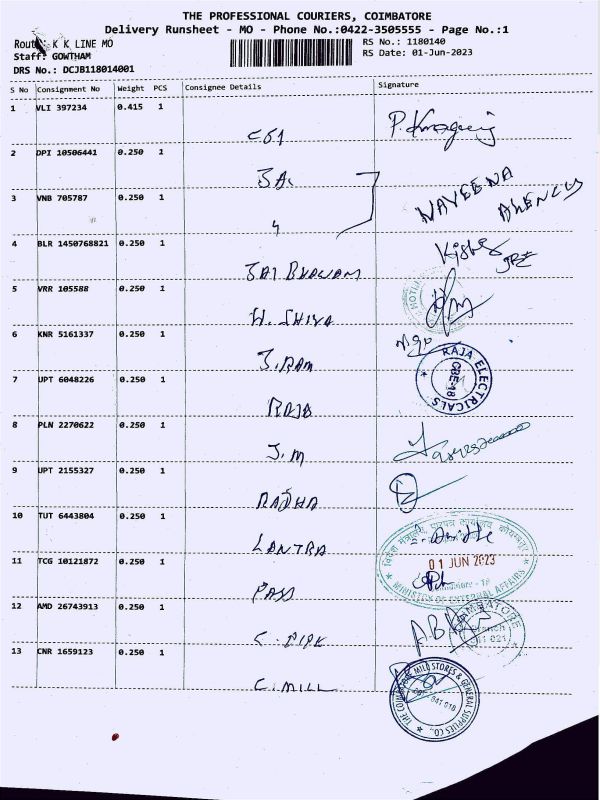 THE PROFESSIONAL COURIERS, COIMBATORE
Delivery Runsheet - MO - Phone No.:0422-3505555 - Page No.:1
Route: K K LINE MO
Staff: GOWTHAM
DRS No.: DCJB118014001
RS No.: 1180140
RS Date: 01-Jun-2023
S No Consignment No Weight PCS Consignee Details Signature
1 VLI 397234 0.415 1
2 DPI 10506441 0.250 1
3 VNB 705787 0.250 1 NAVEENA AGENCY
4 BLR 1450768821 0.250 1 JAI BHAVANI
5 VRR 105588 0.250 1 H. SHIVA
6 KNR 5161337 0.250 1 J. RAM
7 UPT 6048226 0.250 1 RAJA
RAJA ELECTRICALS
CBE-18
8 PLN 2270622 0.250 1 J.M
9 UPT 2155327 0.250 1 RADHA
10 TUT 6443804 0.250 1 LANTRA
01 JUN 2023
MINISTRY OF EXTERNAL AFFAIRS
11 TCG 10121872 0.250 1 PASS
12 AMD 26743913 0.250 1
13 CNR 1659123 0.250 1 C. MILL
THE COIMBATORE MILL STORES & GENERAL SUPPLIES CO.
641 018